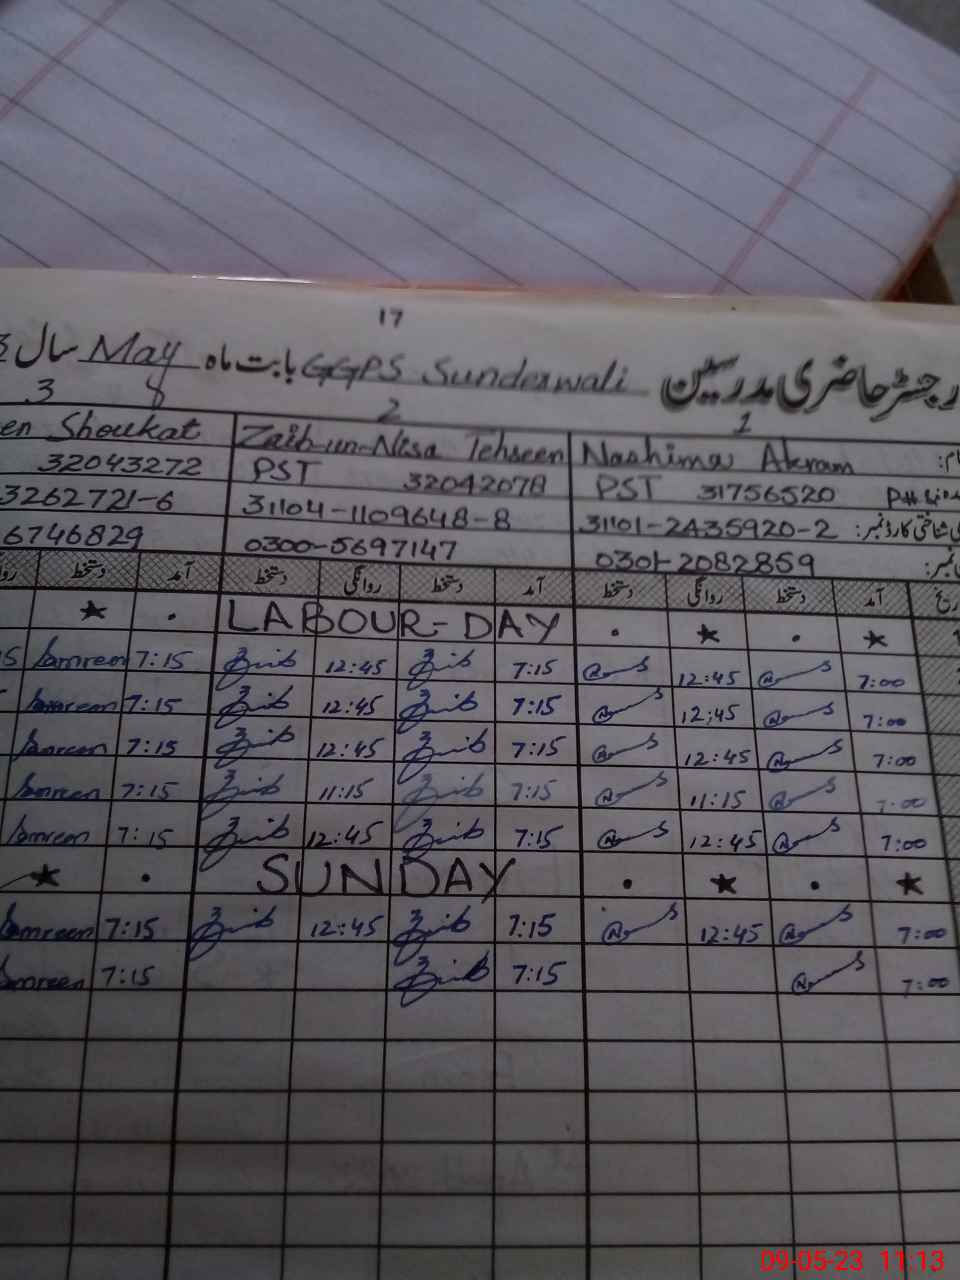 17
رجسٹر حاضری مدرسین GGPS Sunderwali بابت ماہ May سال
1 2 3
Nashima Akram Zaib-un-Nisa Tehseen en Shoukat
PST 31756520 PST 32042078 32043272
31101-2435920-2 31104-1109648-8 3262721-6
0301-2082859 0300-5697147 6746829
آمد دستخط روانگی دستخط آمد دستخط روانگی دستخط آمد دستخط
LABOUR-DAY
7:00 12:45 7:15 12:45 7:15 Samreen
7:00 12:45 7:15 12:45 7:15 Samreen
7:00 12:45 7:15 12:45 7:15 Samreen
7:00 11:15 7:15 11:15 7:15 Samreen
7:00 12:45 7:15 12:45 7:15 Samreen
SUNDAY
7:00 12:45 7:15 12:45 7:15 Samreen
7:00 7:15 7:15 Samreen
09-05-23 11:13